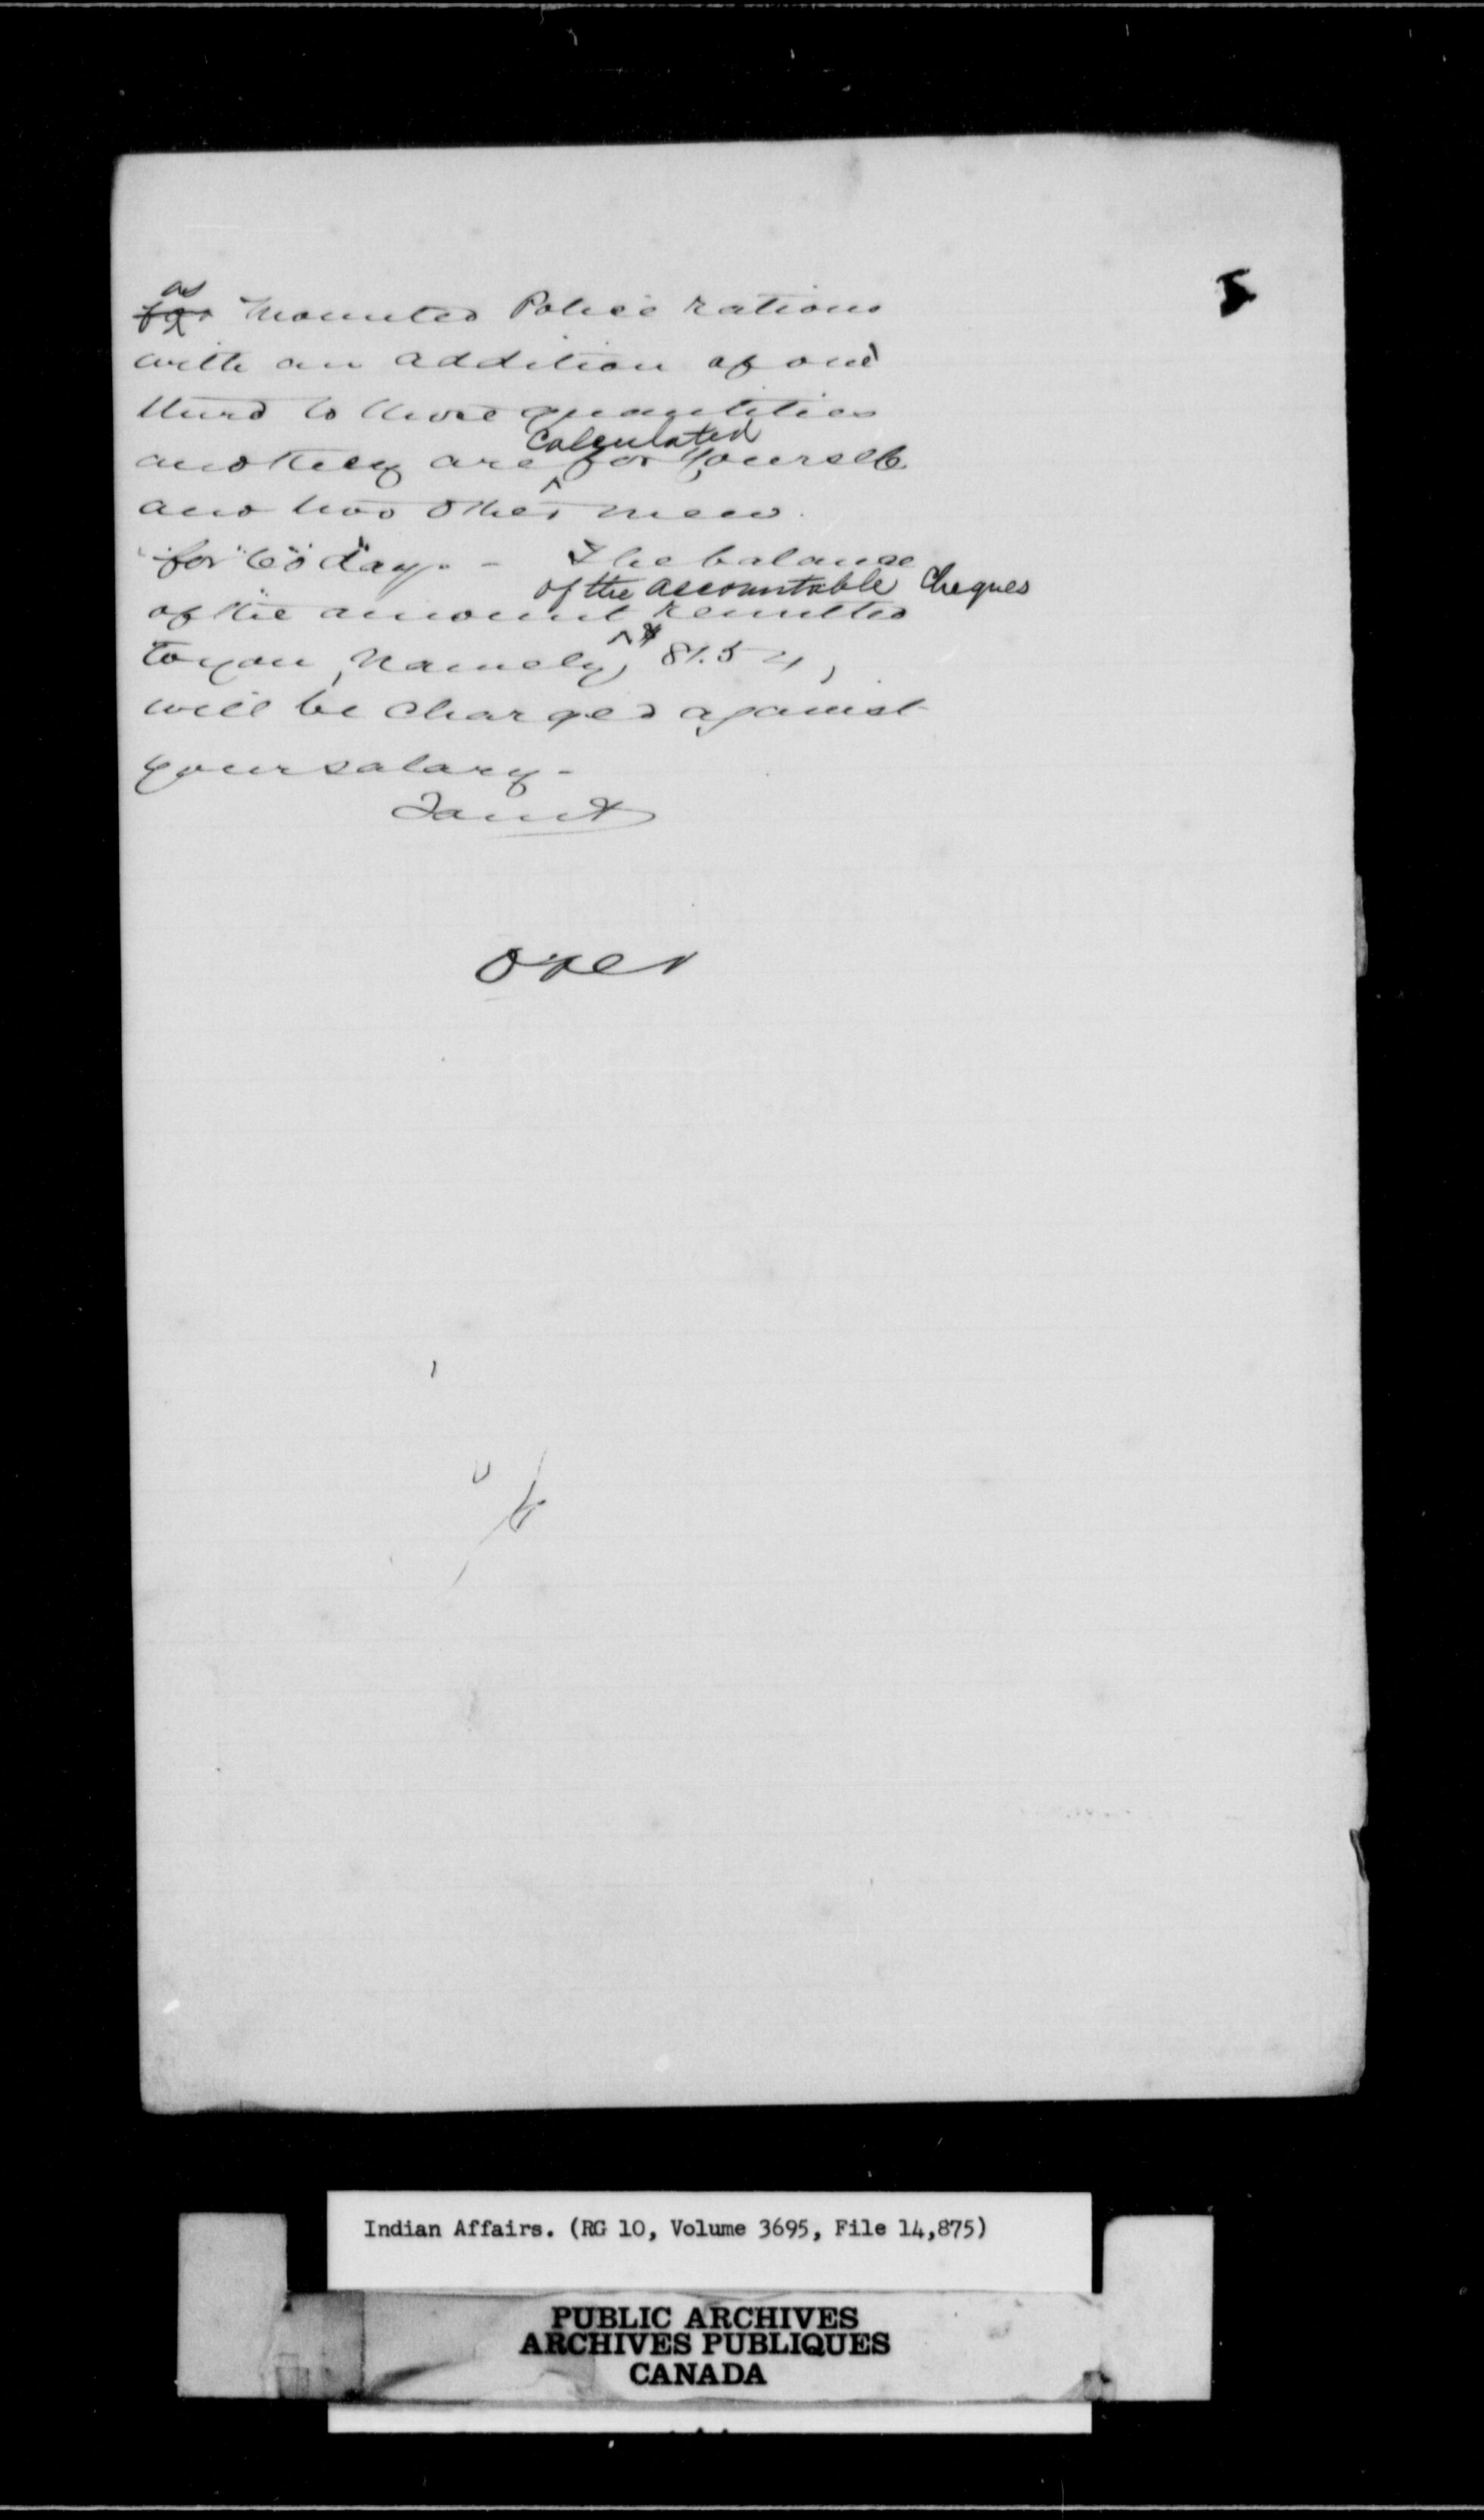 5
as
for Mounted Police rations
with an addition of one
third to those quantities
calculated
and they are for yourself
and two other men.
for 60 days - The balance
of the accountable Cheques
of the amount remitted
to you, namely, $81.54,
will be charged against
your salary -
over
Indian Affairs. (RG 10, Volume 3695, File 14,875)
PUBLIC ARCHIVES
ARCHIVES PUBLIQUES
CANADA